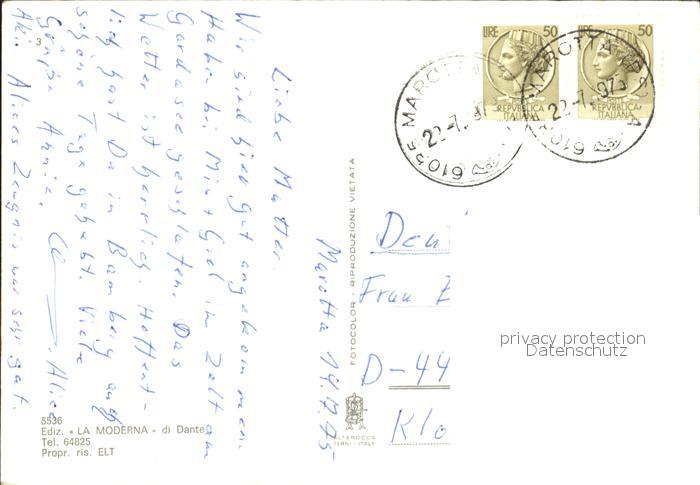 Marotta 14.7.75
Liebe Mutter.
Wir sind hier gut angekommen.
Habe bei M in Zelt am
Gardasee geschlafen. Das
Wetter ist herrlich. Hoffent-
lich hast Du in Bamberg auch
schöne Tage gehabt. Viele
Grüße Annie, Alice
Alices Zeugnis war sehr gut.
3
5536
Ediz. « LA MODERNA » di Dante
Tel. 64825
Propr. ris. ELT
FOTOCOLOR - RIPRODUZIONE VIETATA
ALTEROCCA
TERNI - ITALY
LIRE 50
REPVBBLICA
ITALIANA
LIRE 50
REPVBBLICA
ITALIANA
61035 MAROTTA
22-7.
MAROTTA
22-7.975
610
Frau
D-44
Klo
privacy protection
Datenschutz